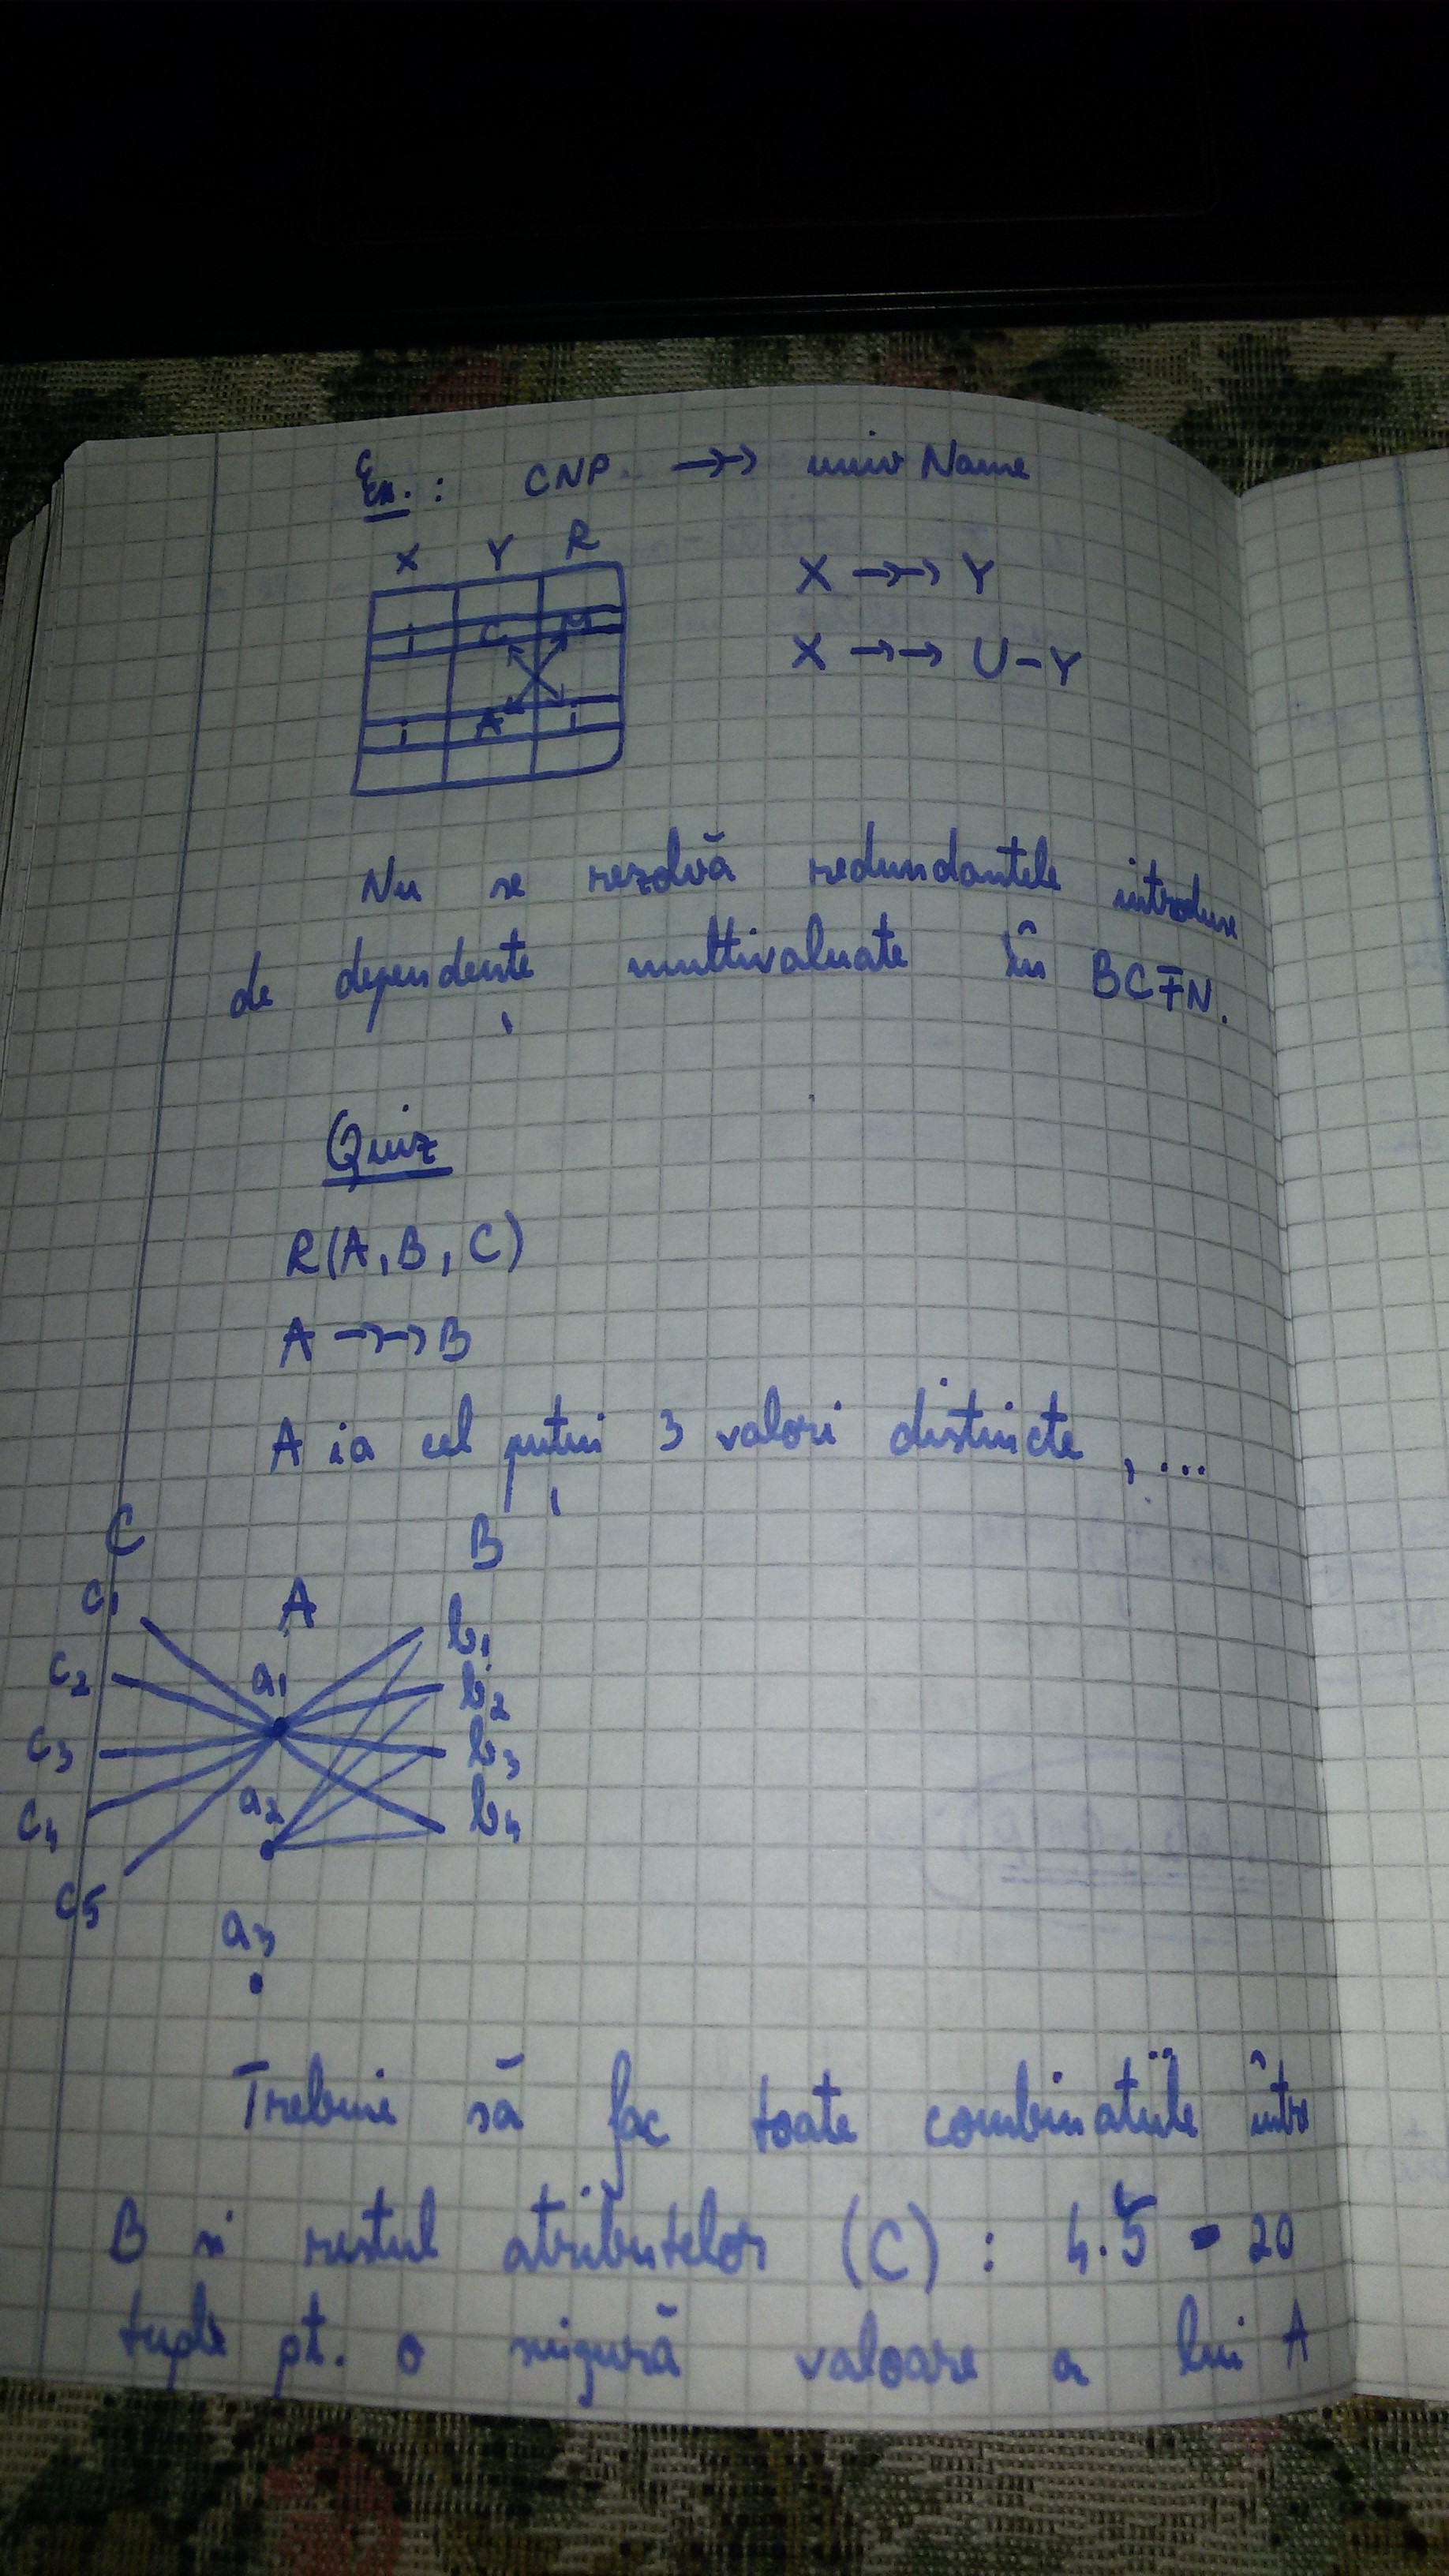 Ex.: CNP →→ univ Name
X Y R
i C M
i A i
X →→ Y
X →→ U-Y
Nu se rezolvă redundanțele introduse
de dependențe multivaluate în BCFN.
Quiz
R(A, B, C)
A →→ B
A ia cel puțin 3 valori distincte, ...
C A B
c1 a1 b1
c2 b2
c3 b3
c4 a2 b4
c5
a3
Trebuie să fac toate combinațiile între
B și restul atributelor (C) : 4·5 = 20
tuple pt. o singură valoare a lui A